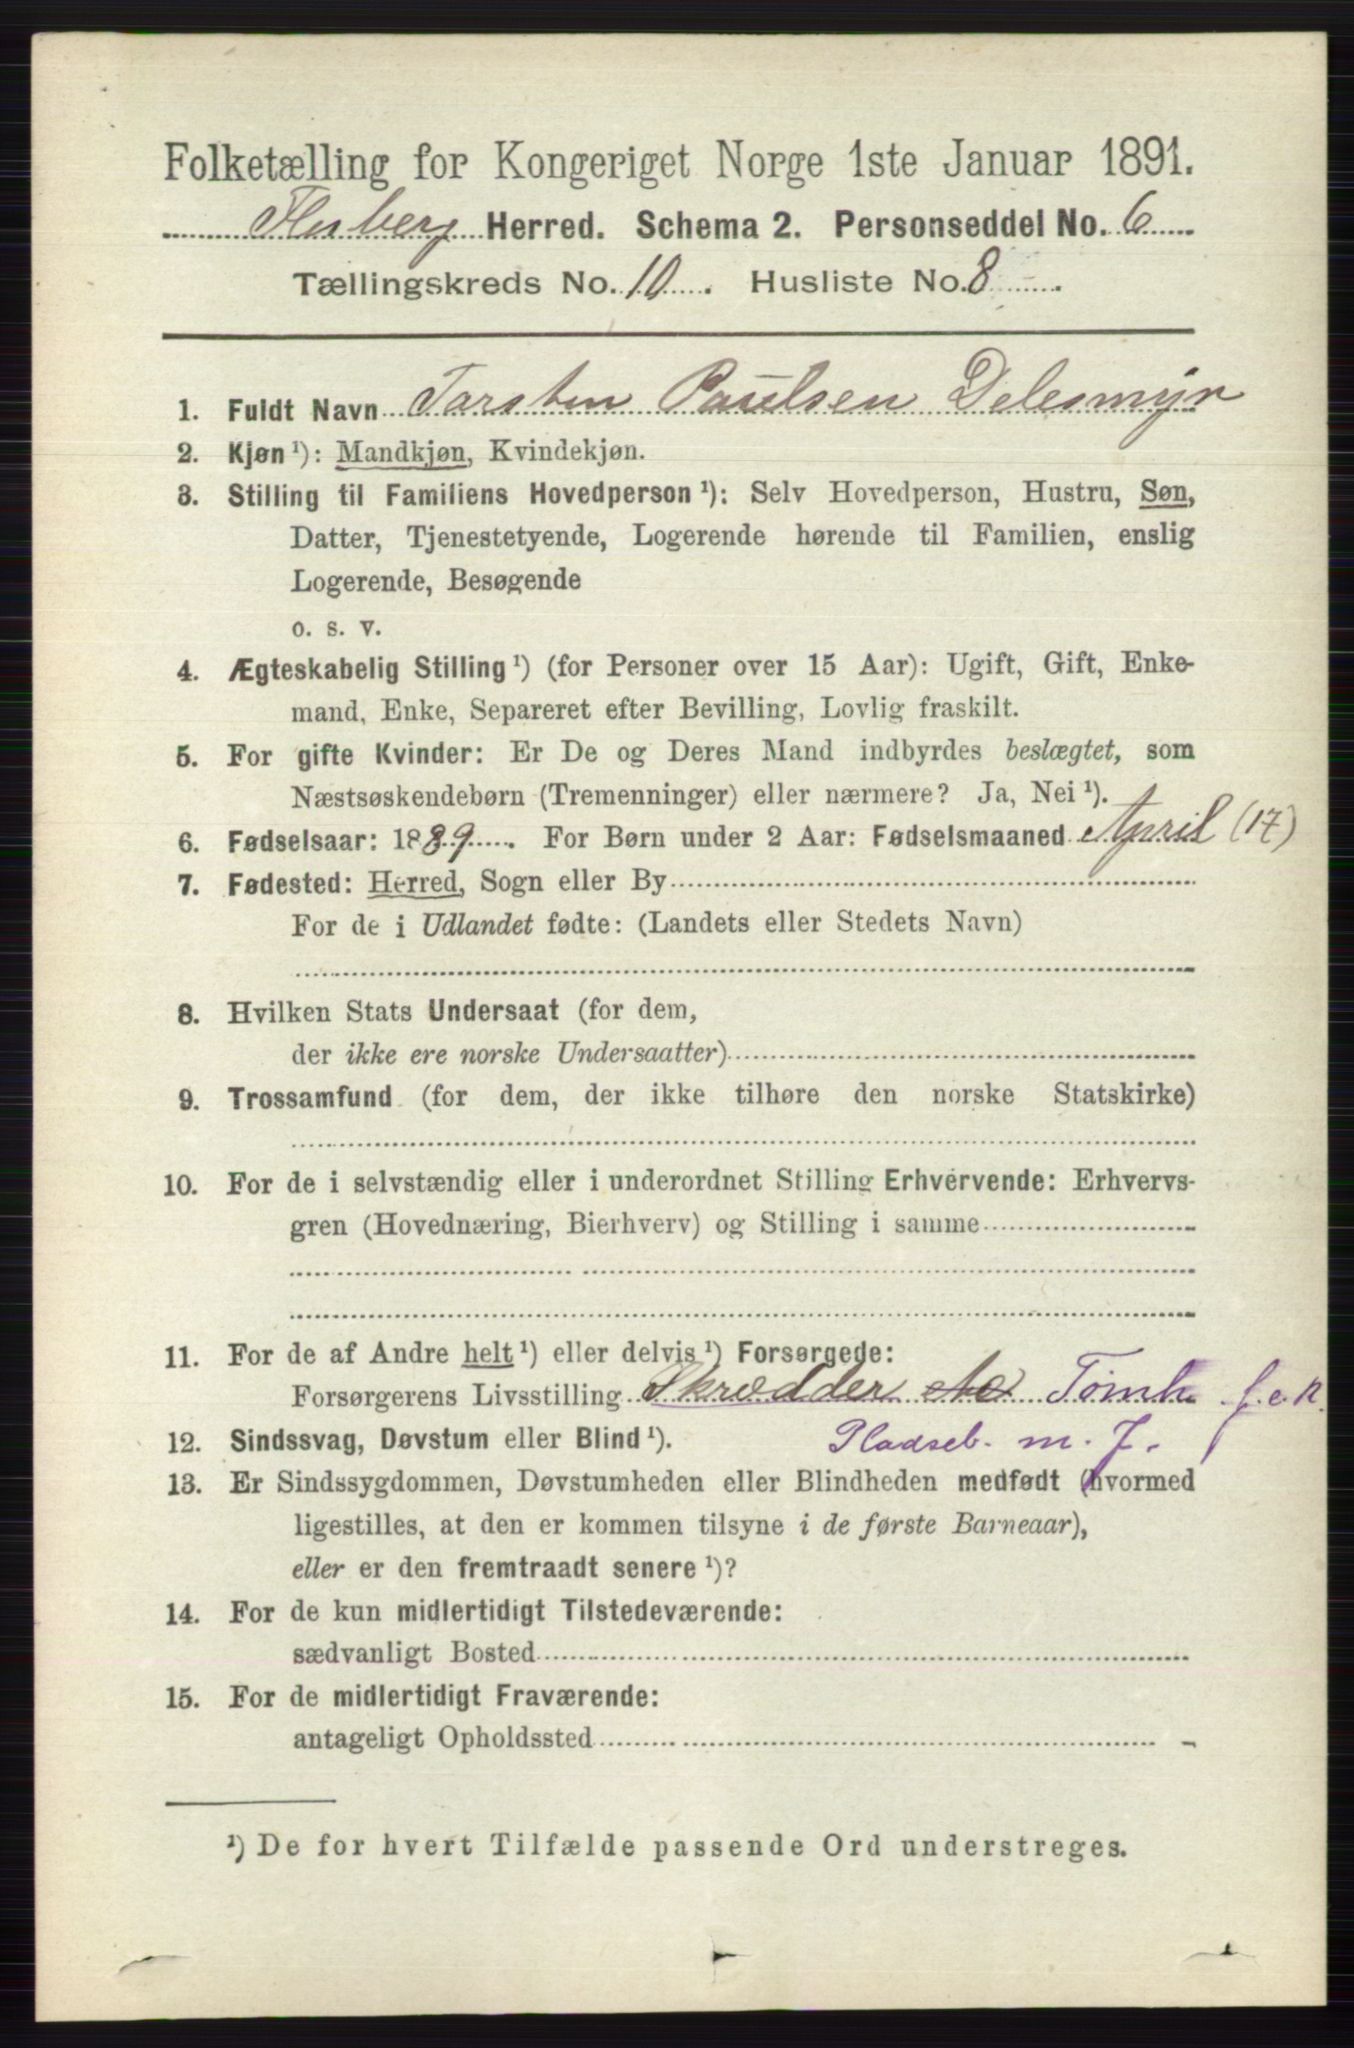 Folketælling for Kongeriget Norge 1ste Januar 1891.
Fluberg Herred. Schema 2. Personseddel No. 6
Tællingskreds No. 10. Husliste No. 8
1. Fuldt Navn Torsten Paulsen Delesmyr
2. Kjøn ¹): Mandkjøn, Kvindekjøn.
3. Stilling til Familiens Hovedperson ¹): Selv Hovedperson, Hustru, Søn,
Datter, Tjenestetyende, Logerende hørende til Familien, enslig
Logerende, Besøgende
o. s. v.
4. Ægteskabelig Stilling ¹) (for Personer over 15 Aar): Ugift, Gift, Enke-
mand, Enke, Separeret efter Bevilling, Lovlig fraskilt.
5. For gifte Kvinder: Er De og Deres Mand indbyrdes beslægtet, som
Næstsøskendebørn (Tremenninger) eller nærmere? Ja, Nei ¹).
6. Fødselsaar: 1889. For Børn under 2 Aar: Fødselsmaaned April (17)
7. Fødested: Herred, Sogn eller By
For de i Udlandet fødte: (Landets eller Stedets Navn)
8. Hvilken Stats Undersaat (for dem,
der ikke ere norske Undersaatter)
9. Trossamfund (for dem, der ikke tilhøre den norske Statskirke)
10. For de i selvstændig eller i underordnet Stilling Erhvervende: Erhvervs-
gren (Hovednæring, Bierhverv) og Stilling i samme
11. For de af Andre helt ¹) eller delvis ¹) Forsørgede:
Forsørgerens Livsstilling Skrædder Tømh. f.e.R.
12. Sindssvag, Døvstum eller Blind ¹). Pladseb. m. J.
13. Er Sindssygdommen, Døvstumheden eller Blindheden medfødt (hvormed
ligestilles, at den er kommen tilsyne i de første Barneaar),
eller er den fremtraadt senere ¹)?
14. For de kun midlertidigt Tilstedeværende:
sædvanligt Bosted
15. For de midlertidigt Fraværende:
antageligt Opholdssted
¹) De for hvert Tilfælde passende Ord understreges.